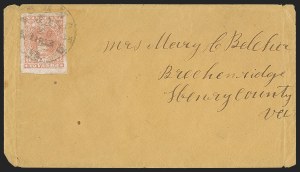 Mrs Mary C Belcher
Brechenridge
Henry County
Va